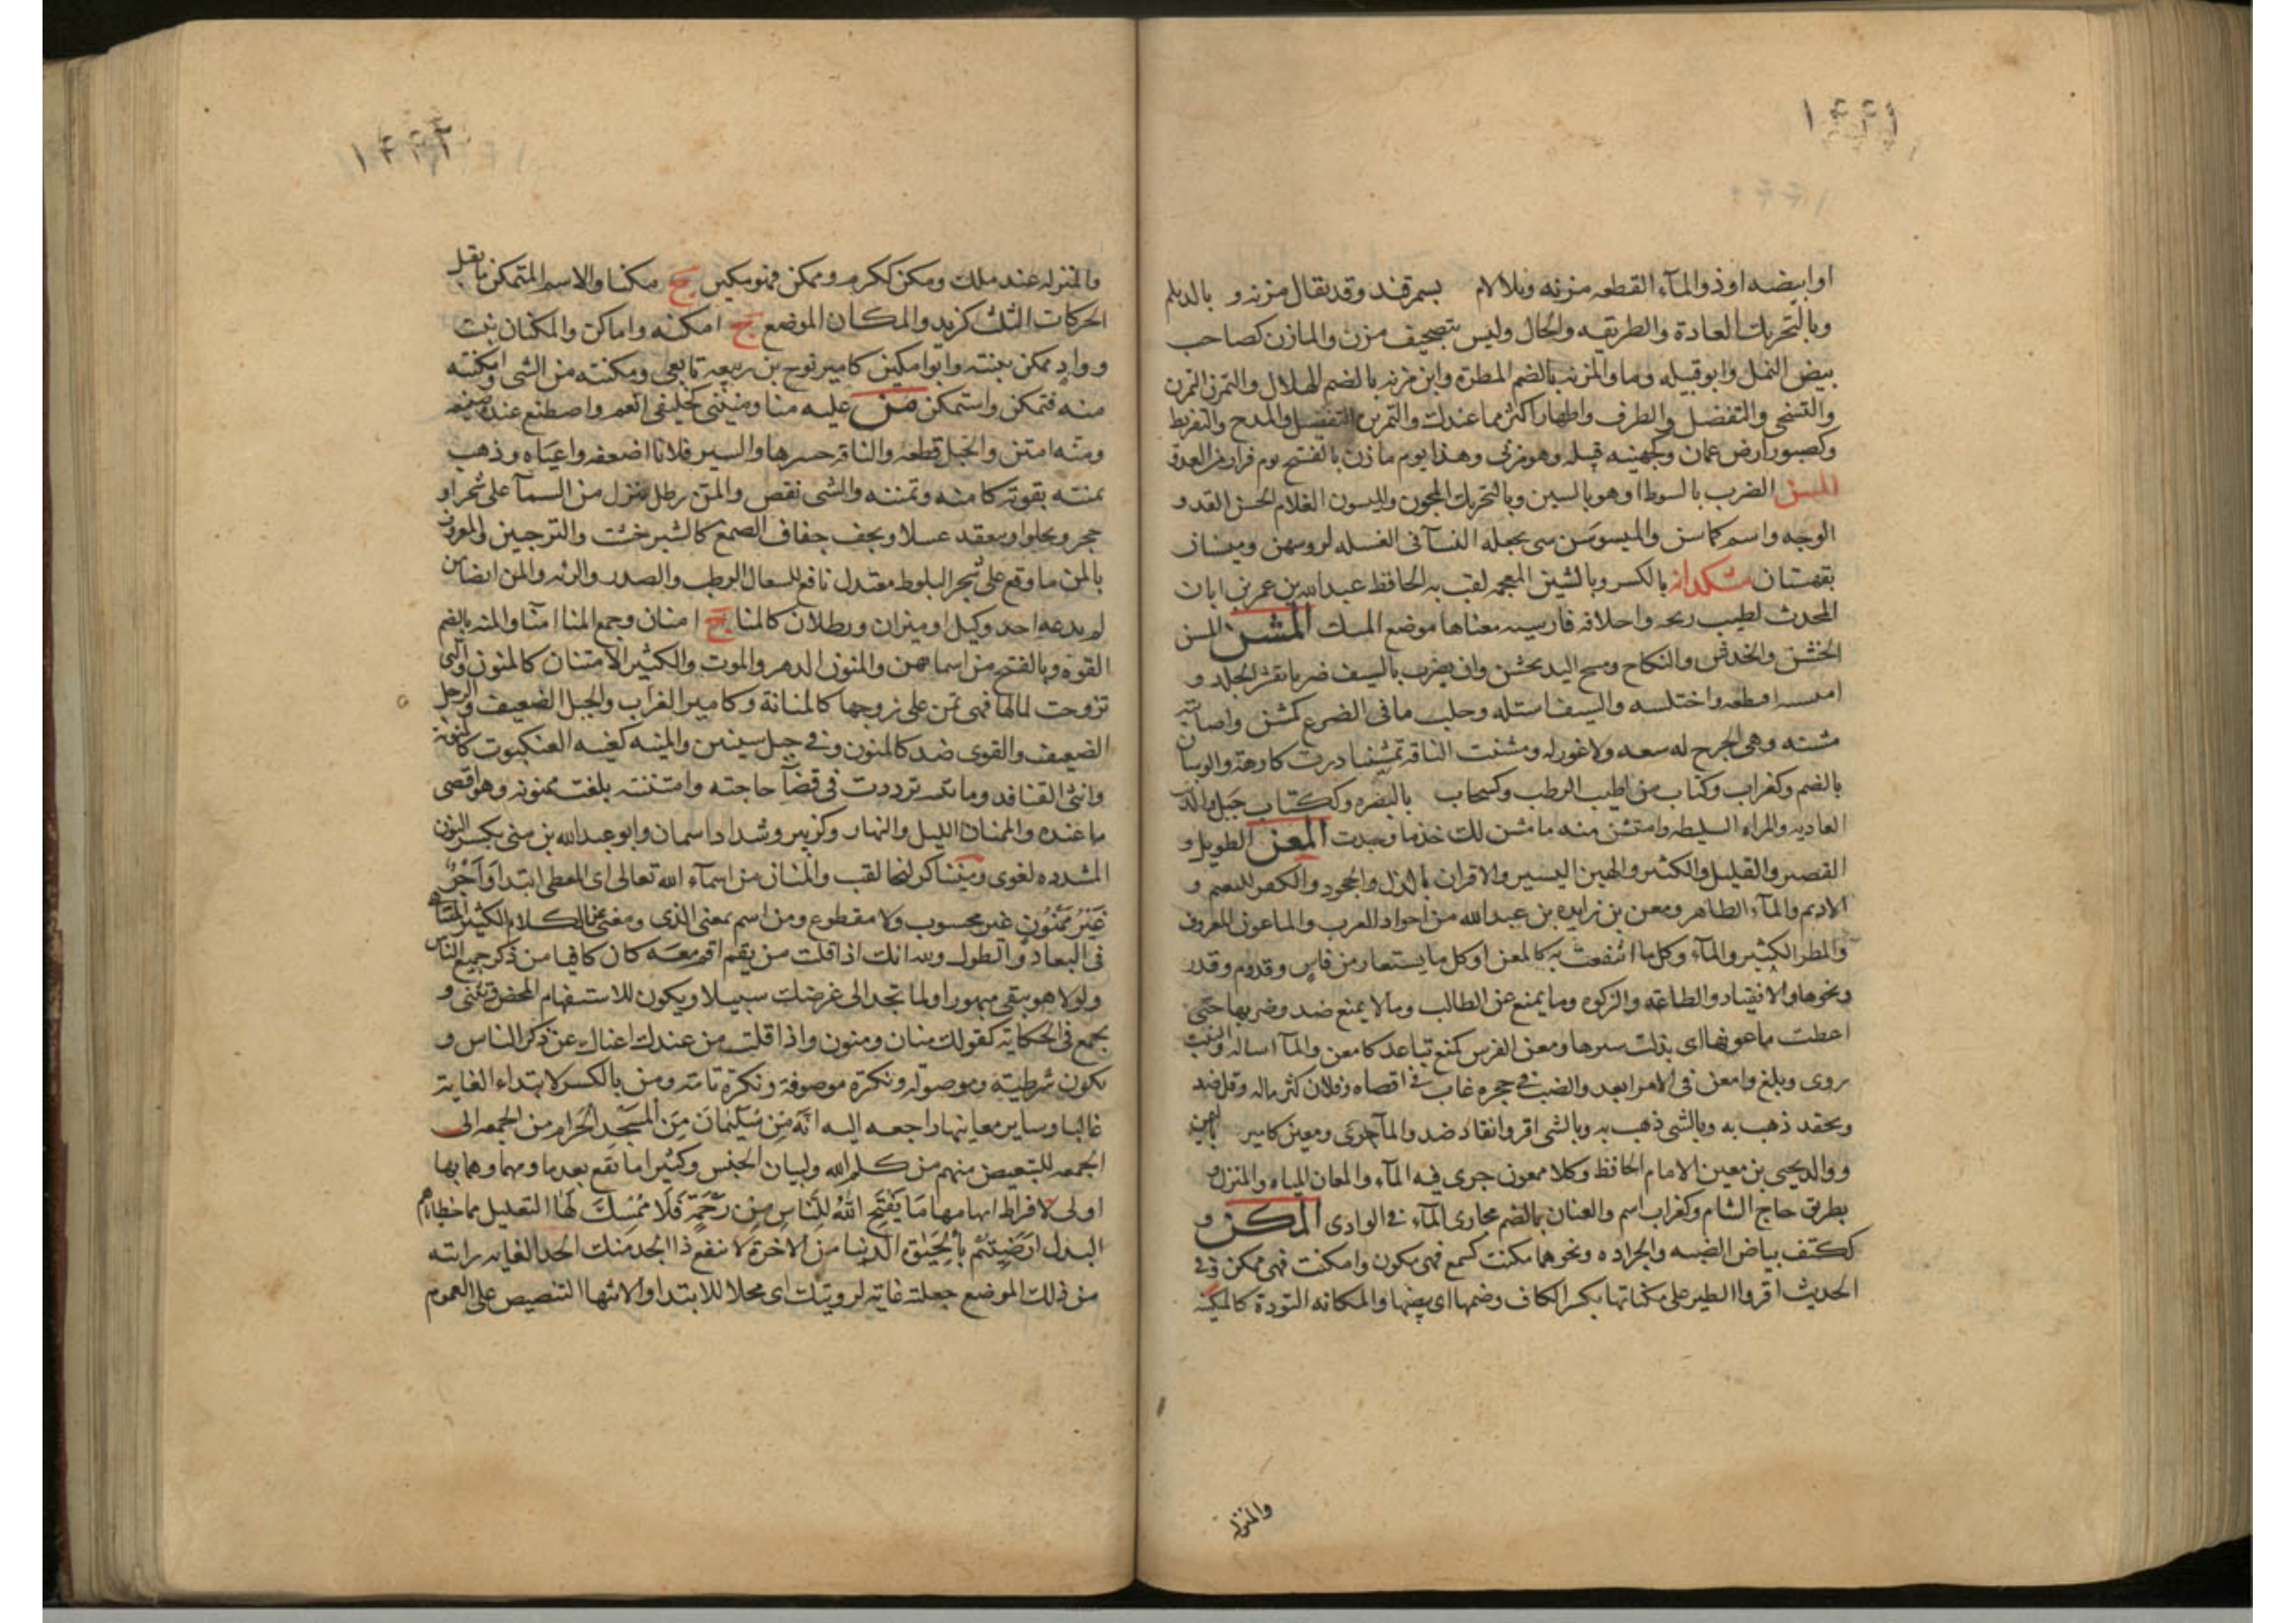 ١٤٤١
او ابيضه او ذو المآء القطعه مزنه وبلا لام بسمرقند وقد يقال مزنه و بالديلم
وبالتحريك العادة والطريقه والحال وليس بتصحيف مزن والمازن كصاحب
بيض النمل وابو قبيله وما والمزنه بالضم المطرة وابن مزنه بالضم الهلال والتمزن التمرن
والتسخى والتفضل والظرف واظهار اكثر مما عندك والتمزين التفضيل والمدح والتقريظ
وكصبور ارض عمان وكجهينه قبيله وهو مزنى وهذا يوم مازن بالفتح يوم فرار من العدو
المسن الضرب بالسوط او هو بالسين وبالتحريك المجون والميسون الغلام الحسن القد و
الوجه واسم كماسن والميسوسن شى يجعله النسآ فى الغسله لروسهن وميسان
بقهستان مشكدانه بالكسر وبالشين المعجمه لقب به الحافظ عبد الله بن عمر بن ابان
المحدث لطيب ريحه واخلاقه فارسيه معناها موضع المسك المشن المسن
الخشن والخدش والنكاح ومسح اليد بخشن وان يضرب بالسيف ضربا يقشر الجلد و
امتشنه اقتطعه واختلسه والسيف استله وحلب ما فى الضرع كمشن واصابته
مشنه وهى الجرح له سعه ولا غور له ومشنت الناقه تمشينا درت كارهة والموشان
بالضم وكغراب وكتاب من اطيب الرطب وكسحاب بالبصره وككتاب جبل والذئب
العاديه والمراه السليطه وامتشن منه ما مشن لك خذ ما وجدت المعن الطويل و
القصير والقليل والكثير والهين اليسير والاقرار بالذل والجحود والكفر للنعم و
الاديم والمآء الظاهر ومعن بن زايده بن عبد الله من اجواد العرب والماعون المعروف
والمطر الكثير والمآء وكل ما انتفعت به كالمعن او كل ما يستعار من فاس وقدوم وقدر
ونحوها والانقياد والطاعه والزكوه وما يمنع عن الطالب وما لا يمنع ضد وضربها حتى
اعطت ماعونها اى بذلت سيرها ومعن الفرس كمنع تباعد كامعن والمآ اساله والنبت
روى وبلغ وامعن فى الامر ابعد والضب فى جحره غاب فى اقصاه وفلان كثر ماله وقل ضد
وبحقه ذهب به وبالشى ذهب به وبالشى اقر وانقاد ضد والمآ جرى ومعين كامير باليمن
ووالد يحيى بن معين الامام الحافظ وكلا ممعون جرى فيه المآء والمعان المباه والمنزل و
بطريق حاج الشام وكغراب اسم والمعنان بالضم مجارى المآء فى الوادى المكن و
ككتف بياض الضبه والجراده ونحوهما مكنت كسمع فهى مكون وامكنت فهى ممكن وفى
الحديث اقروا الطير على مكناتها بكسر الكاف وضمها اى بيضها والمكانه التودة كالمكينه
والمنزله
١٤٤٢
والمنزله عند ملك ومكن ككرم وممكن فهو مكين ج مكنا والاسم المتمكن ما يقبل
الحركات الثلث كزيد والمكان الموضع ج امكنه واماكن والمكنان نبت
وواد ممكن ينبته وابو مكين كامير نوح بن ربيعه تابعى ومكنته من الشى وامكنته
منه فتمكن واستمكن من عليه منا ومنينى كخليفى انعم واصطنع عنده صنيعه
ومنه امتن والحبل قطعه والناقه حسرها والسير فلانا اضعفه واعياه وذهب
بمنته بقوته كامنه وتمننه والشى نقص والمن رطل ينزل من السمآ على شجر او
حجر ويحلو او ينعقد عسلا ويجف جفاف الصمغ كالشيرخشت والترنجبين والمعروف
بالمن ما وقع على شجر البلوط معتدل نافع للسعال الرطب والصدر والرئه والمن ايضا من
لم يدعه احد وكيل او ميزان ورطلان كالمنا ج امنان وجمع المنا امنا والمنه بالضم
القوة وبالفتح من اسمائهن والمنون الدهر والموت والكثير الامتنان كالمنونه والتى
تزوجت لمالها فهى تمن على زوجها كالمنانة وكامير الغراب والحبل الضعيف والرجل
الضعيف والقوى ضد كالمنون وفى جبل سينين والمينه كغيه العنكبوت كالمنونه
وانثى القنافد ومانته ترددت فى قضآ حاجته وامتننته بلغت ممنونه وهو اقصى
ما عنده والممنان الليل والنهار وكزبير وشداد اسمان وابو عبد الله بن منى بكسر النون
المشدده لغوى ومنينا كزليخا لقب والمنان من اسمآء الله تعالى اى المعطى ابتدا وَاَجْرٌ
غَيْرُ مَمْنُونٍ غير محسوب ولا مقطوع ومن اسم بمعنى الذى ومغن عن الكلام الكثير المتناهى
فى البعاد والطول وبه انك اذا قلت من يقم اقم معه كان كافيا من ذكر جميع الناس
ولولا هو بقى مبهورا ولما تجد الى غرضك سبيلا ويكون للاستفهام المحض وتثنى و
يجمع فى الحكايه كقولك منان ومنون واذا قلت من عندك اغناك عن ذكر الناس و
يكون شرطيته وموصوله ونكرة موصوفة ونكرة تامه ومن بالكسر لابتداء الغايه
غالبا وساير معانيها راجعه اليه اِنَّهُ مِن سُلَيْمَانَ مِنَ الْمَسْجِدِ الْحَرَامِ من الجمعه الى
الجمعه للتبعيض منهم من كلم الله ولبيان الجنس وكثيرا ما يقع بعد ما ومهما وهما بها
اولى لافراط ابهامهما مَا يَفْتَحِ اللّهُ لِلنَّاسِ مِن رَحْمَةٍ فَلَا مُمْسِكَ لَهَا التعليل مما خطاياهم
البدل اَرَضِيتُمْ بِالْحَيٰوةِ الدنيا من الاخرة لا ينفع ذا الجد منك الجد الغايه رايته
من ذلك الموضع جعلته غايه لرويتك اى محلا للابتدا والانتها التنصيص على العموم